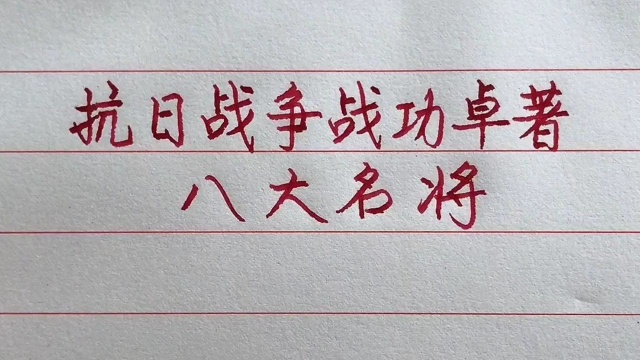 抗日战争战功卓著
八大名将